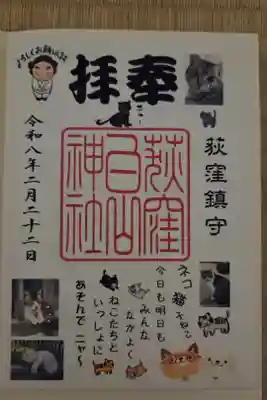 よろしくお願いします
奉拝
荻窪鎮守
荻窪
白山
神社
令和八年二月二十二日
ネコ 猫 ねこ
今日も明日も
みんな
なかよく
ねこたちと
いっしょに
あそんでニャ〜